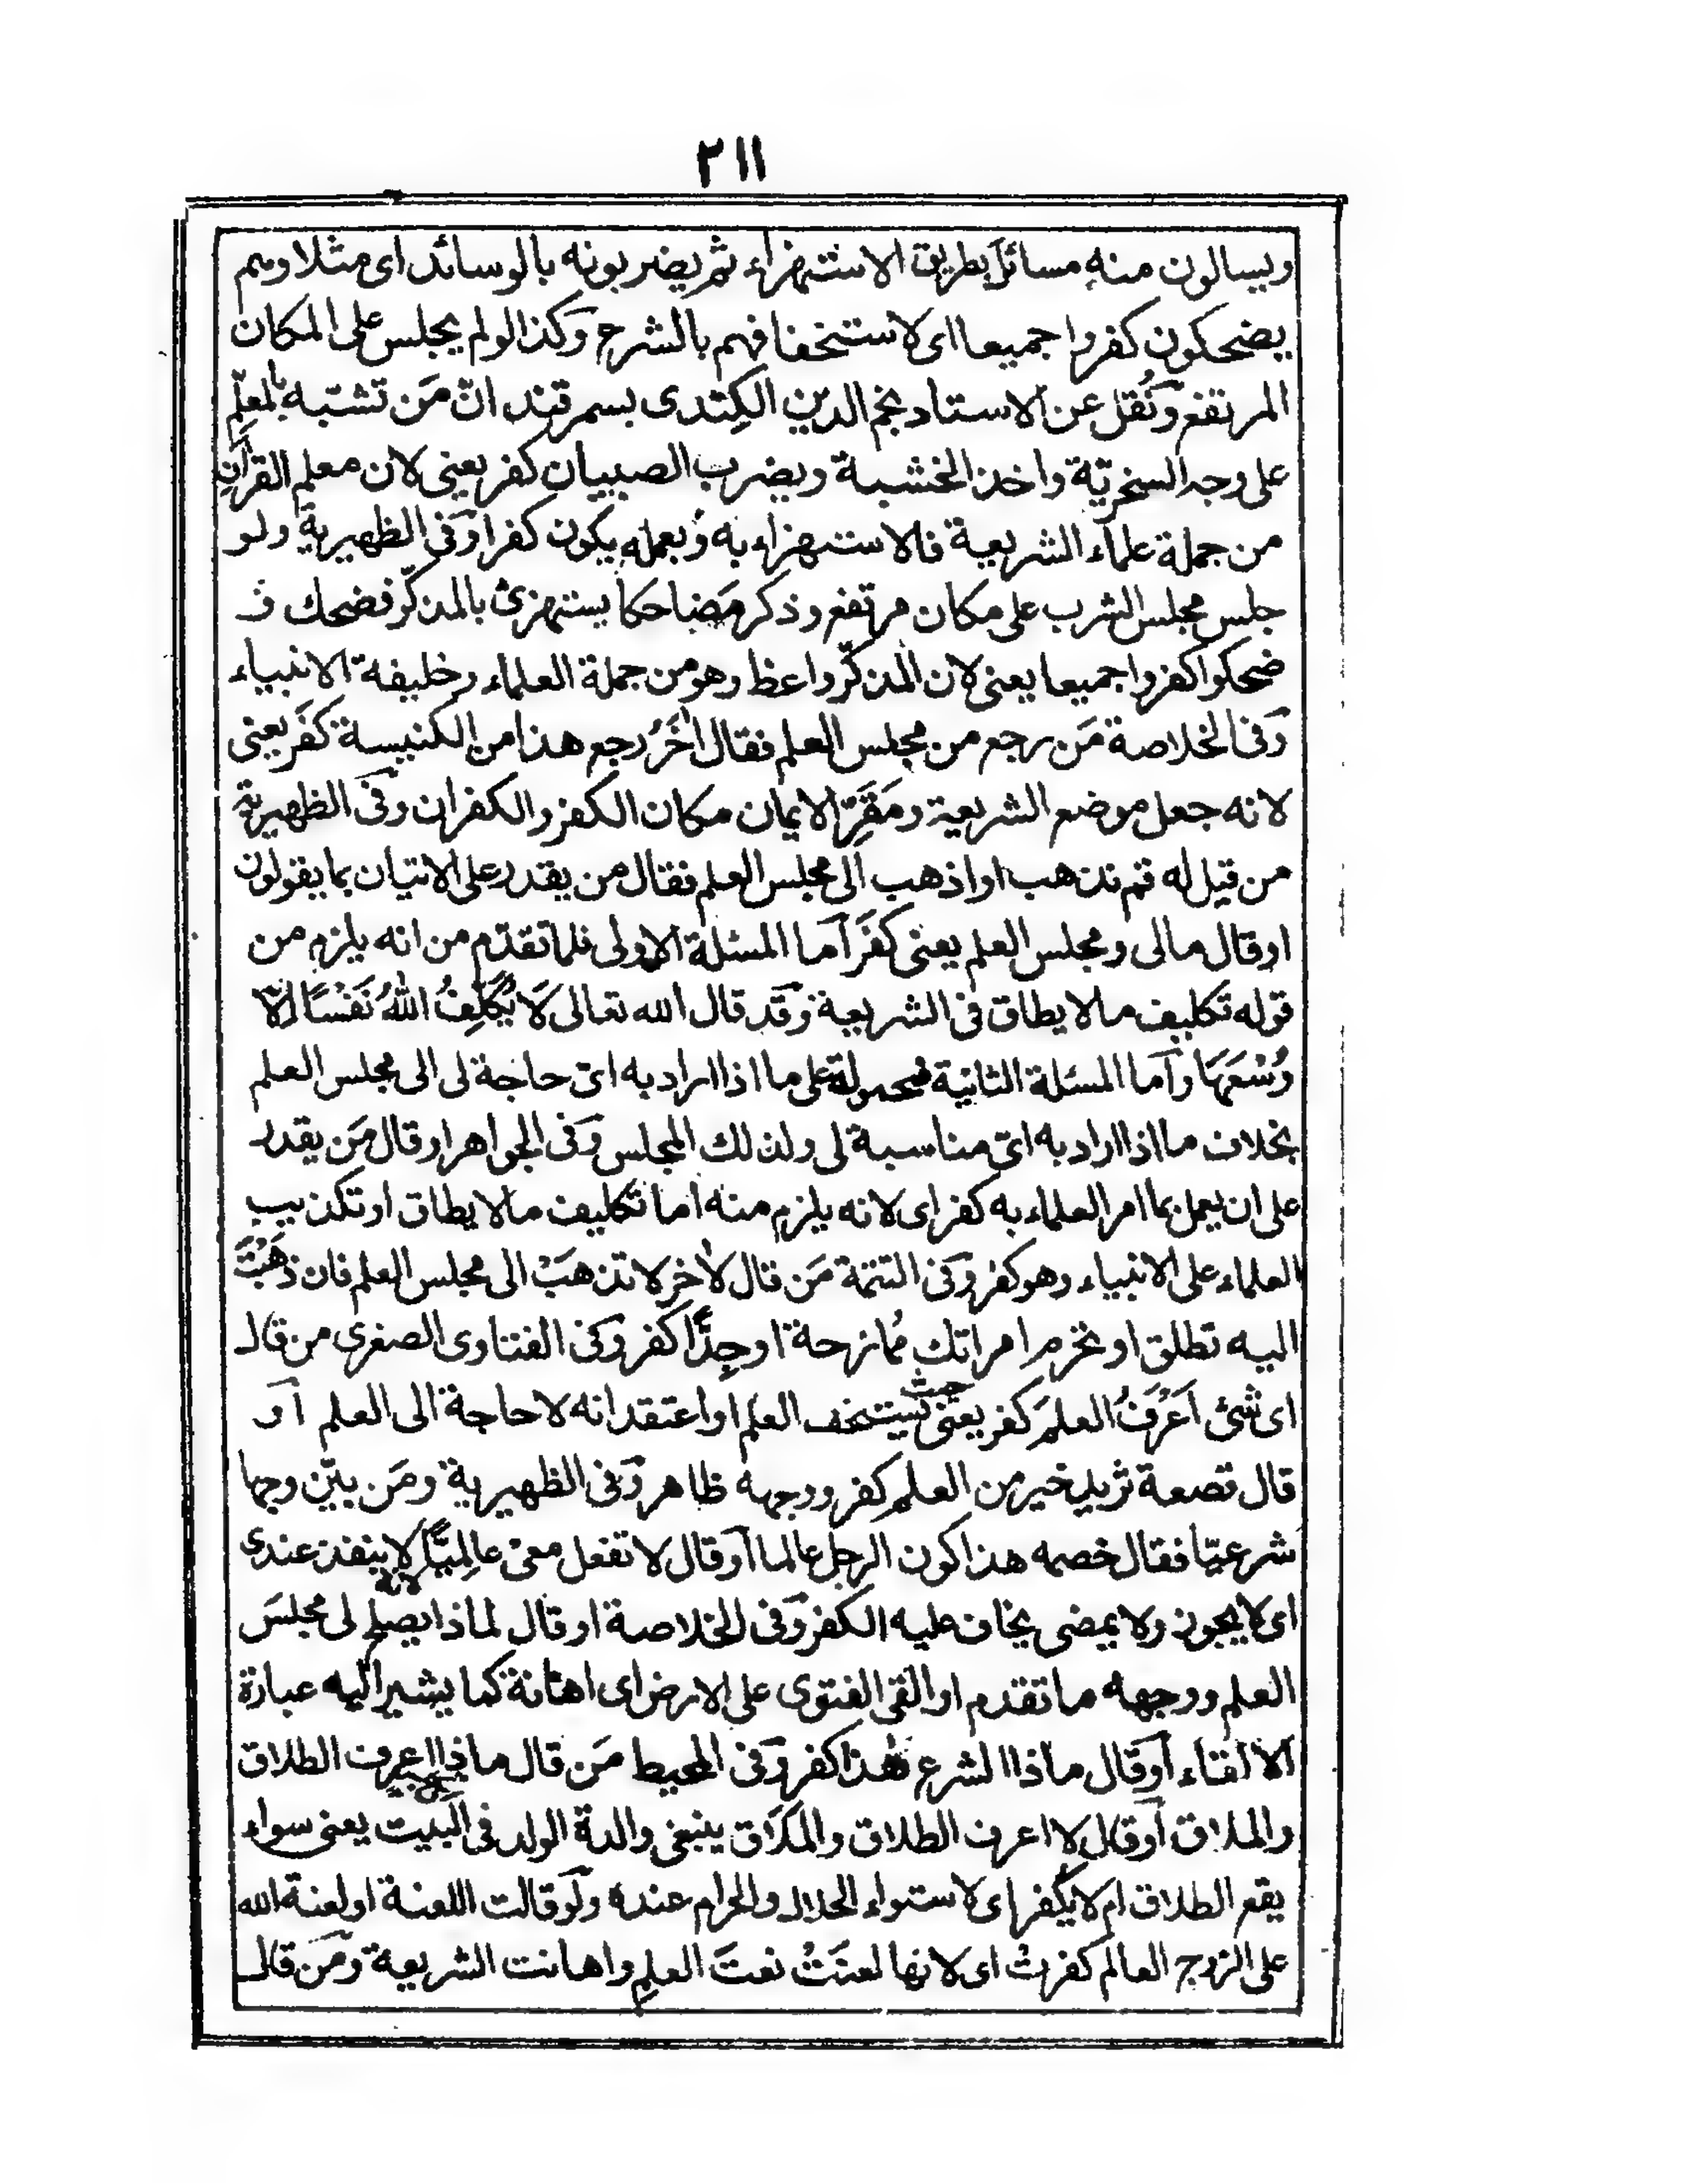 ٢١١
ويسالون منه مسائل بطريق الاستهزاء ثم يضربونه بالوسائد اى مثلا وهم
يضحكون كفروا جميعا اى لاستخفافهم بالشرع وكذا لو لم يجلس على المكان
المرتفع ونُقل عن الاستاد نجم الدين الكِندى بسمرقند انّ مَن تشبّه بالمعلّم
على وجه السخريّة واخذ الخشبة ويضرب الصبيان كفر يعنى لان معلم القرآن
من جملة علماء الشريعة فالاستهزاء به وبعمله يكون كفرا وفى الظهيرية ولو
جلس مجلس الشرب على مكان مرتفع وذكر مَضاحكا يستهزئ بالمذكّر فضحك و
ضحكوا كفروا جميعا يعنى لان المذكّر واعظ وهو من جملة العلماء وخليفة الانبياء
وفى الخلاصة مَن رجع من مجلس العلم فقال اٰخَرُ رجع هذا من الكنيسة كفَر يعنى
لانه جعل موضع الشريعة ومَقَرّ الايمان مكان الكفر والكفران وفى الظهيرية
من قيل له قم نذهب او اذهب الى مجلس العلم فقال من يقدر على الاتيان بما يقولون
او قال مالى ومجلس العلم يعنى كفَر اما المسئلة الاولى فلما تقدّم من انه يلزم من
قوله تكليف ما لا يطاق فى الشريعة وقد قال الله تعالى لَا يُكَلِّفُ اللهُ نَفْسًا اِلَّا
وُسْعَهَا واما المسئلة الثانية فمحمولة على ما اذا اراد به اىّ حاجة لى الى مجلس العلم
بخلاف ما اذا اراد به اىّ مناسبة لى ولذلك المجلس وفى الجواهر او قال مَن يقدر
على ان يعمل بما امر العلماء به كفر اى لانه يلزم منه اما تكليف ما لا يطاق او تكذيب
العلماء على الانبياء وهو كفر وفى التتمة مَن قال لاٰخر لا تذهبْ الى مجلس العلم فان ذهَبْتَ
اليه تطلق او تحرم امراتك مُمازحة او جِدًّا كفر وفى الفتاوى الصغرى من قال
اى شئ اَعْرَفُ العلمَ كفر يعنى حيث يستخف العلم او اعتقد انه لا حاجة الى العلم او
قال قصعة ثريد خير من العلم كفر ووجهه ظاهر وفى الظهيرية ومَن بيّن وجها
شرعيّا فقال خصمه هذا كون الرجل عالما او قال لا تفعل معى عالِميًّا لانه لا ينفذ عندى
اى لا يجوز ولا يمضى يخاف عليه الكفر وفى الخلاصة او قال لماذا يصلح لى مجلسَ
العلم ووجهه ما تقدم او القى الفتوى على الارض اى اهانة كما يشير اليه عبارة
الالقاء او قال ماذا الشرع هذا كفر وفى المحيط مَن قال ماذا اعرف الطلاق
والملاق او قال لا اعرف الطلاق والملاق ينبغى والدة الولد فى البيت يعنى سواء
يقع الطلاق ام لا يكفر اى لاستواء الحلال والحرام عنده ولو قالت اللعنة او لعنة الله
على الزوج العالم كفرت اى لانها لعنَتْ نعتَ العلمِ واهانت الشريعة ومَن قال